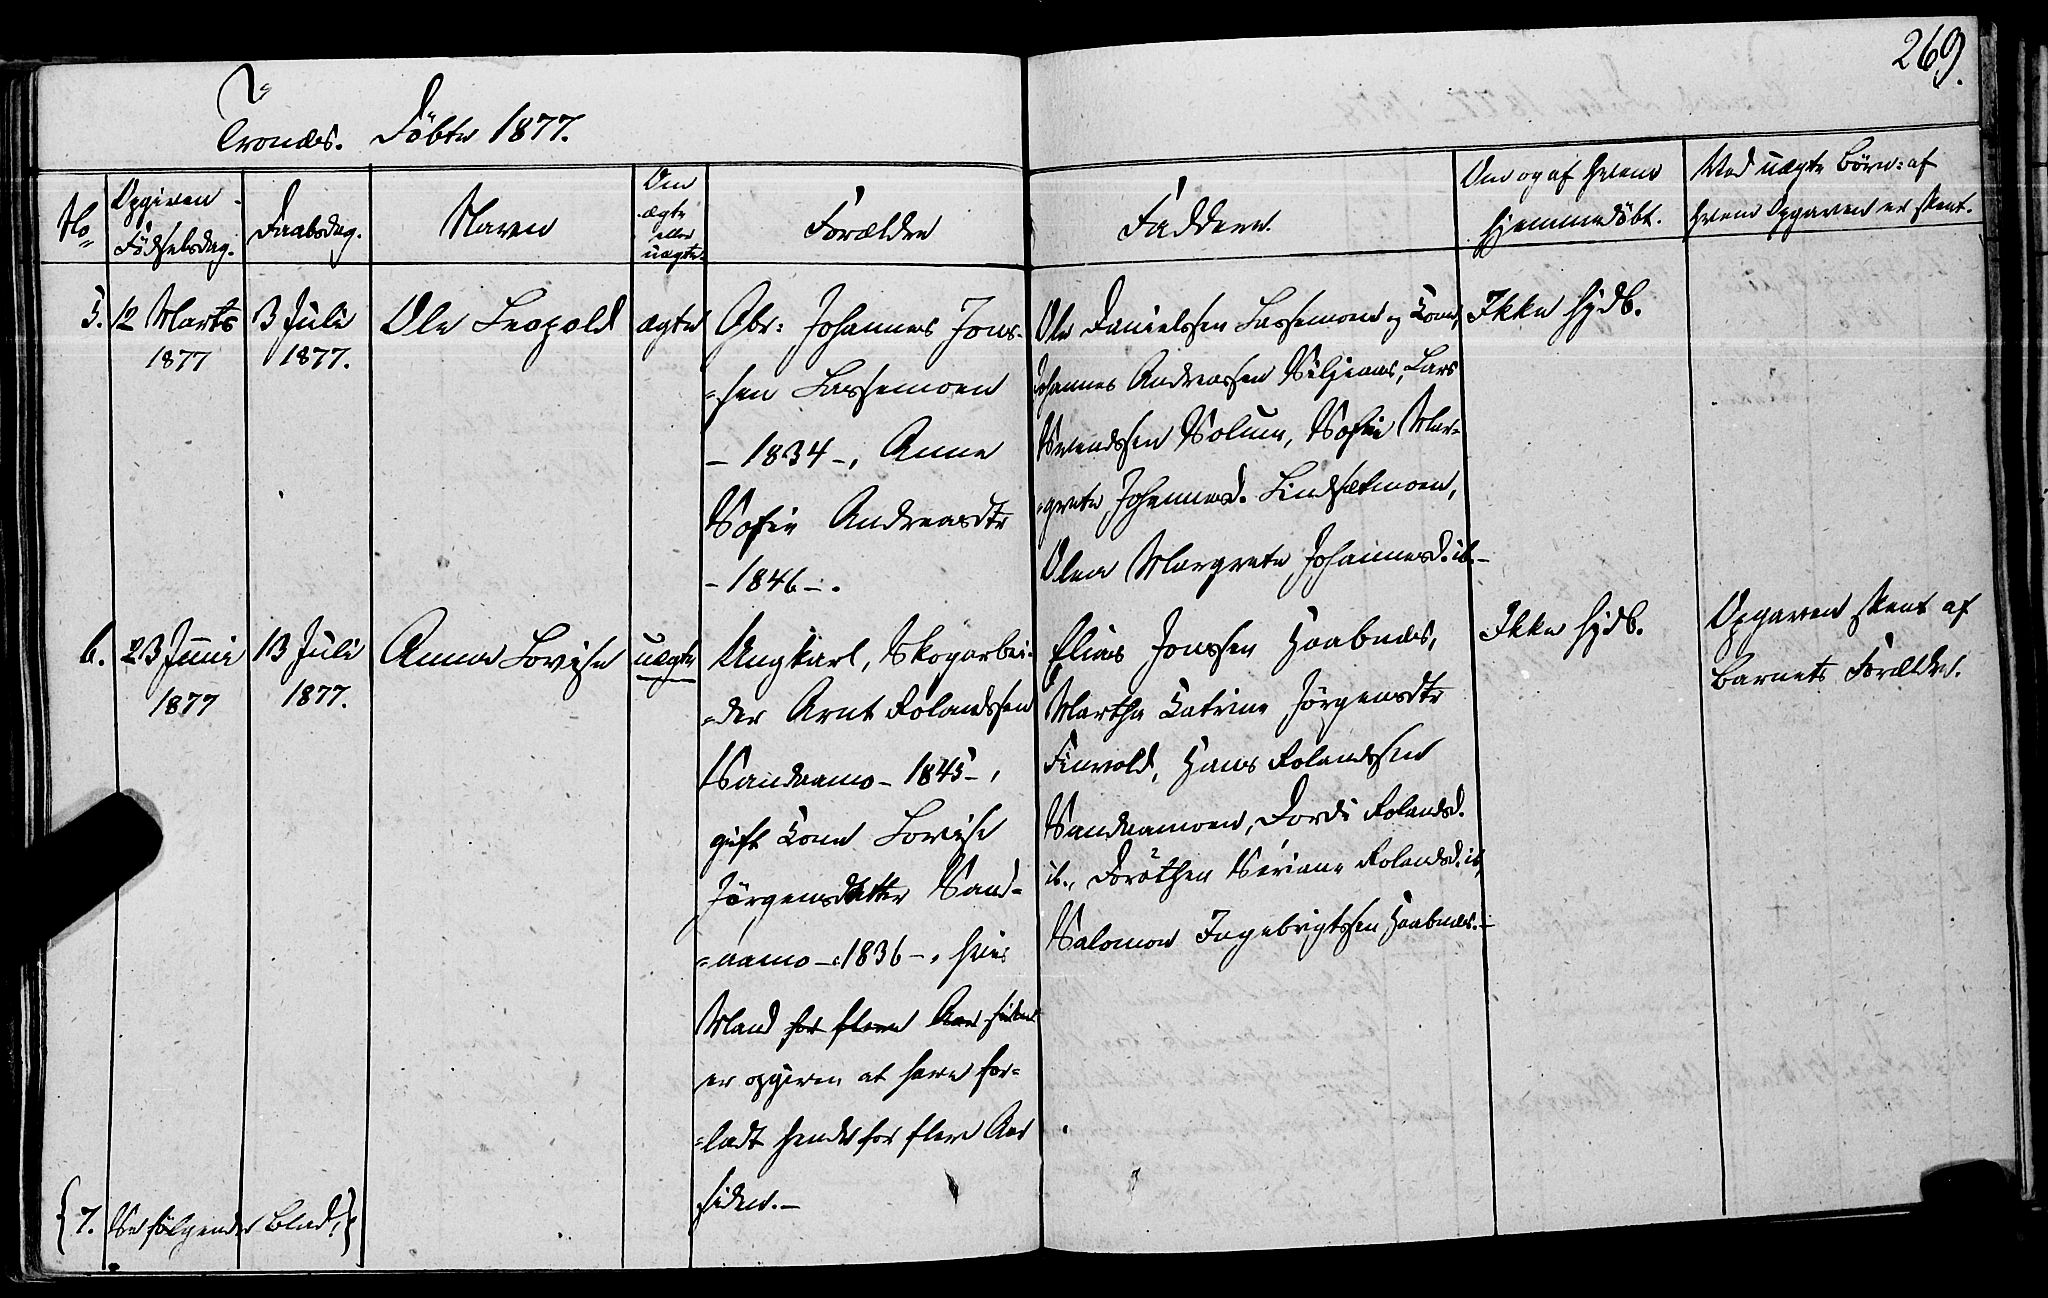 269.
Trones. Döbte 1877.
No
Opgiven Födselsdag.
Daabsdag.
Navn
Om ægte eller uægte.
Forældre
Faddere.
Om og af hvem hjemmedöbt.
Ved uægte Börn: af hvem Opgaven er skeet.
5. 12 Marts 1877
13 Juli 1877.
Ole Leopold
ægte
Gbr: Johannes Jons-
=sen Lassemoen
- 1834 -, Anne
Sofie Andreasdtr
- 1846 -.
Ole Danielssen Lassemoen og Kone,
Johannes Andreassen Viljenæs, Lars
Svendssen Solum, Sofie Mar-
=grete Johannesd. Lindsætmoen,
Olea Margrete Johannesd. ib. -
Ikke hjdb.
6. 23 Juni 1877
13 Juli 1877.
Anna Lovise
uægte
Ungkarl, Skogarbei-
=der Arnt Rolandssen
Sandnamo - 1845 -,
gift Kone Lovise
Jörgensdatter Sand-
=namo - 1836 -, hvis
Mand for flere Aar siden
er opgiven at have for=
=ladt hende for flere Aar
siden. -
Elias Jonssen Haabnæs,
Martha Katrine Jörgensdtr
Finvold, Hans Rolandssen
Sandnamoen, Dordi Rolandsd.
ib., Dorothea Seriane Rolandsd. ib,
Salomon Ingebrigtssen Haabnæs. -
Ikke hjdb.
Opgaven skeet af
Barnets Forældre.
{7. Se fölgende Blad,}